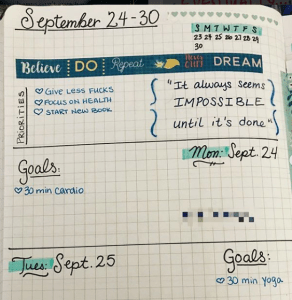 September 24-30
S M T W T F S
23 24 25 26 27 28 29
30
Believe DO Repeat DREAM
PRIORITIES
GIVE LESS FUCKS
FOCUS ON HEALTH
START NEW BOOK
"It always seems
IMPOSSIBLE
until it's done"
Mon: Sept. 24
Goals:
30 min cardio
Tues: Sept. 25
Goals:
30 min yoga